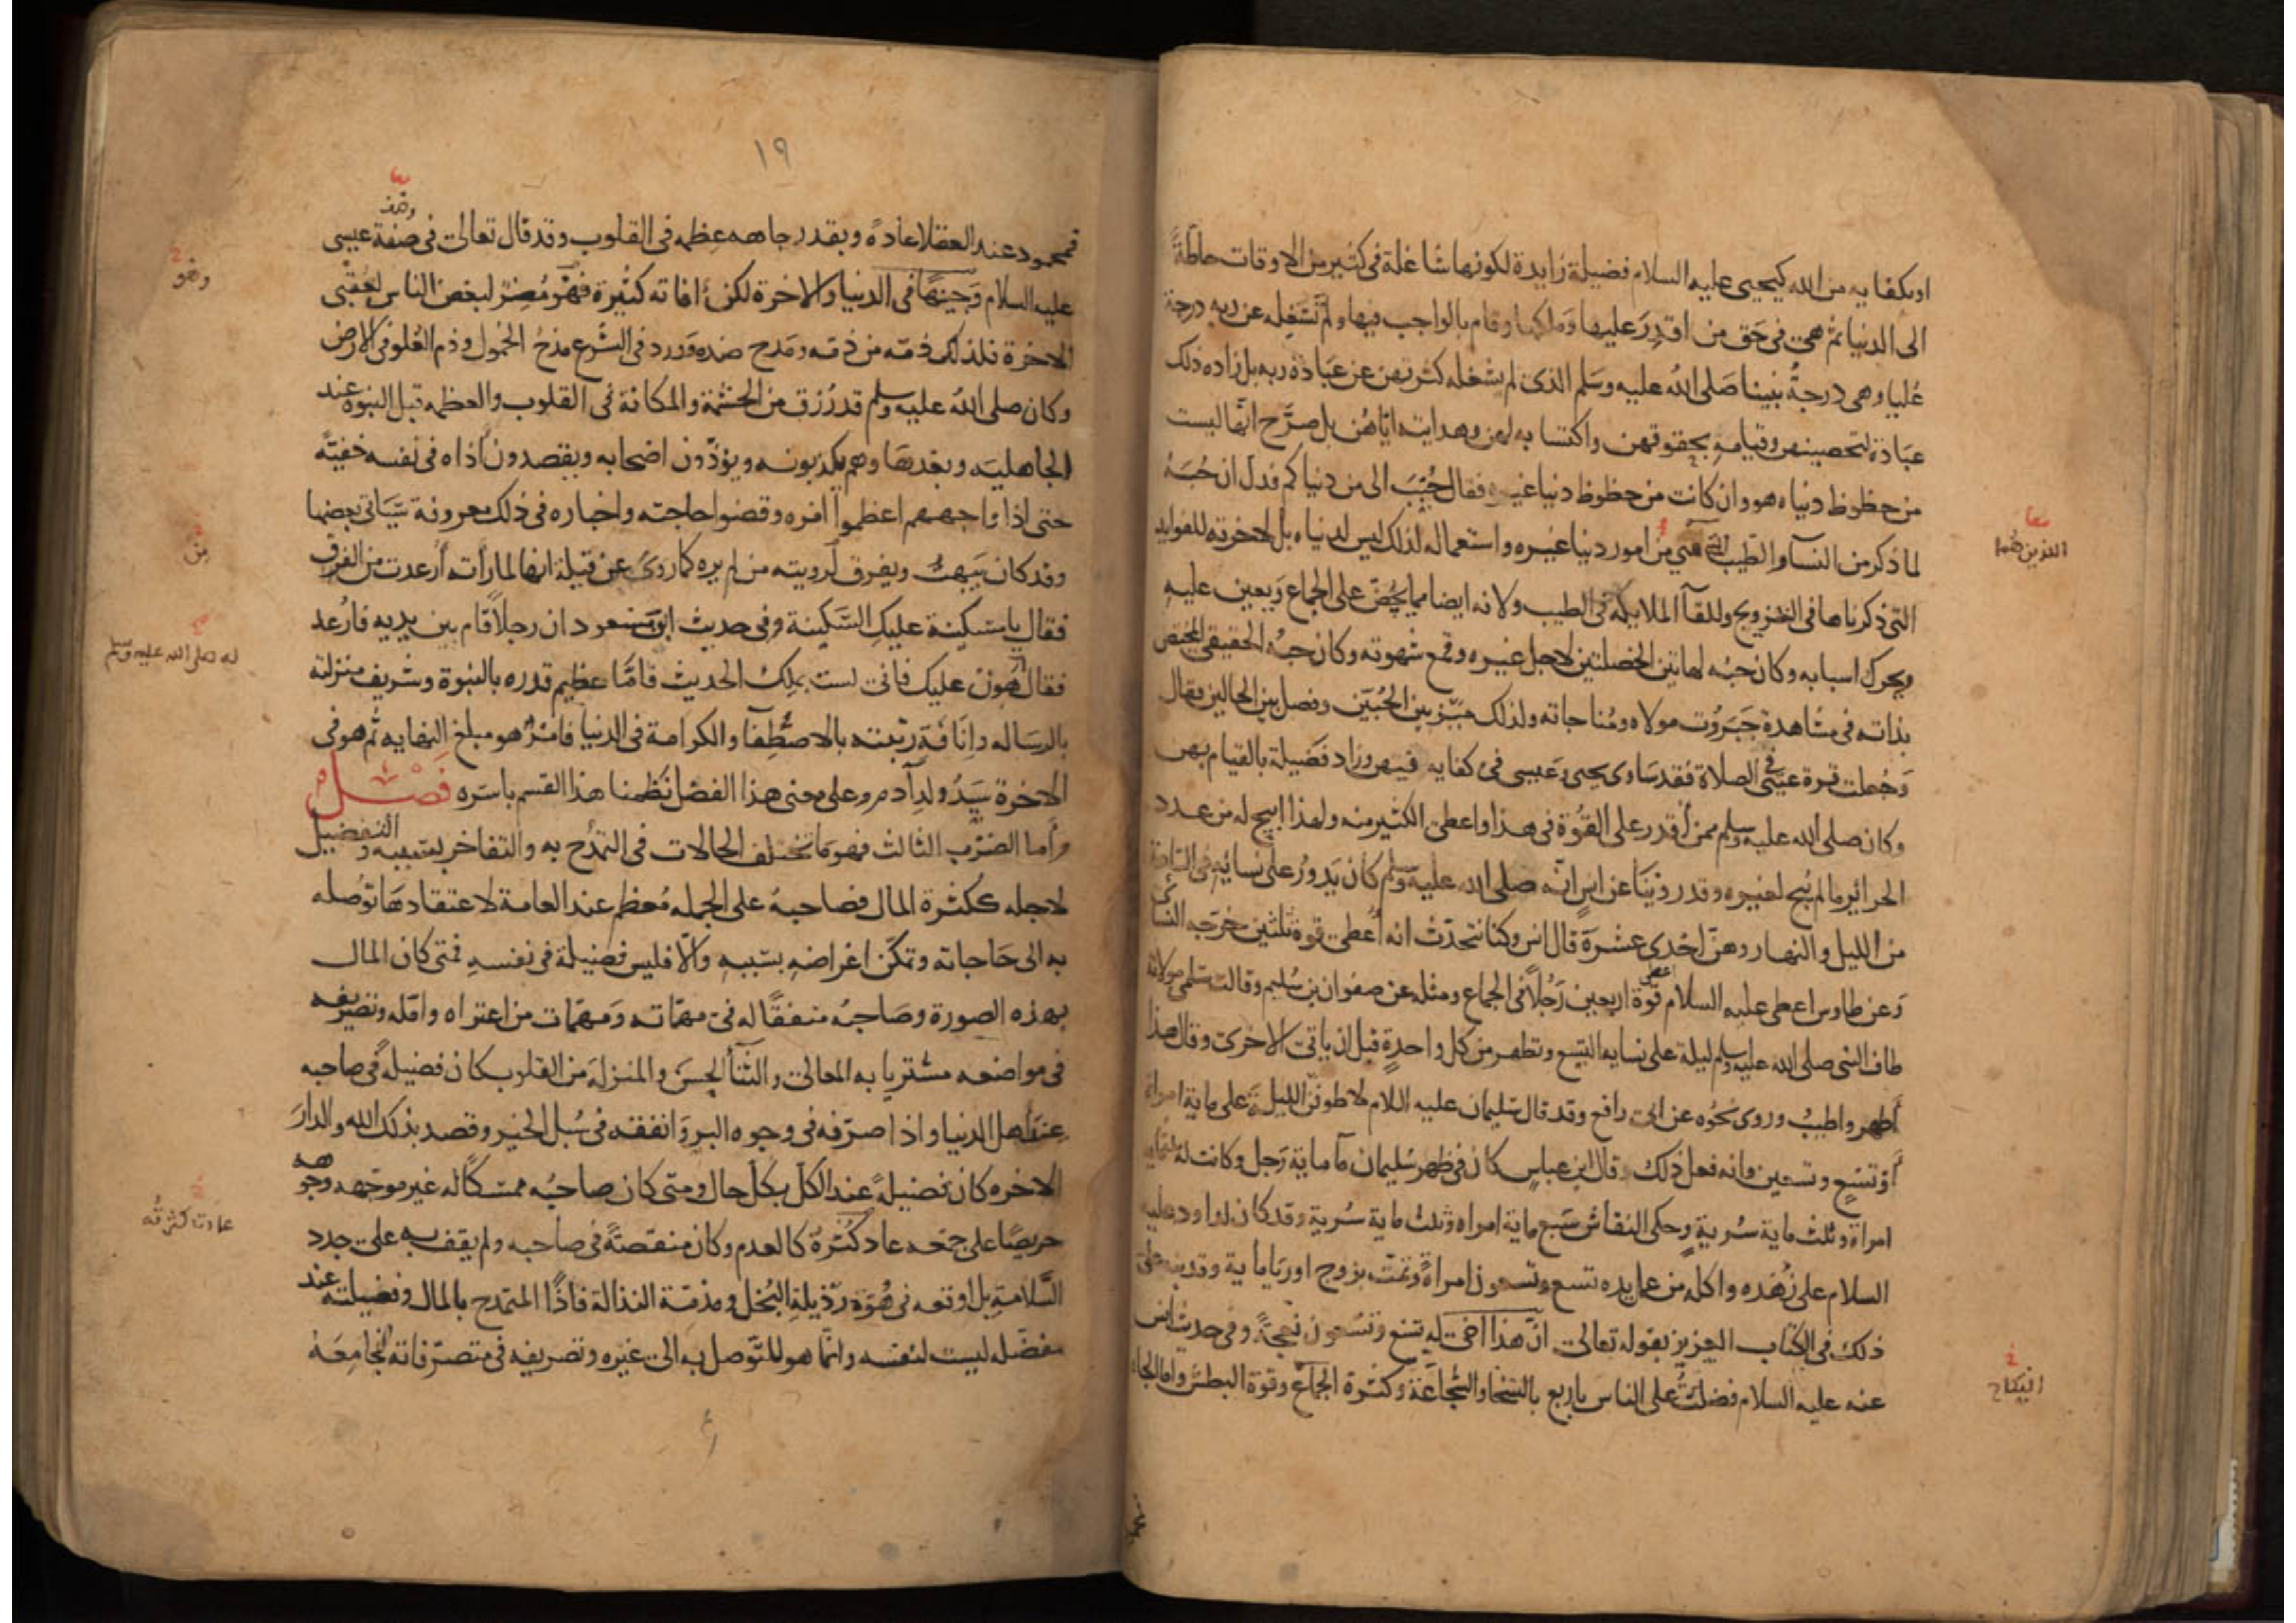 او بكفايه من الله كيحيى عليه السلام فضيلة زايدة لكونها شاغلة في كثير من الاوقات حاطة
الى الدنيا ثم هي في حق من اقدر عليها وملكها وقام بالواجب فيها ولم تشغله عن ربه درجة
عليا وهي درجة نبينا صلى الله عليه وسلم الذي لم يشغله كثرتهن عن عبادة ربه بل زاده ذلك
عبادة لتحصينهن وقيامه بحقوقهن واكتسابه لهن وهدايته اياهن بل صرح انها ليست
من حظوظ دنياه هو وان كانت من حظوظ دنيا غيره فقال حبب الى من دنياكم فدل ان حبه
لما ذكر من النسآ والطيب هي من امور دنيا غيره واستعماله لذلك ليس لدنياه بل لاخرته للفوايد
اللذين هما
التي ذكرناها في التزويج وللقآ الملايكة في الطيب ولانه ايضا مما يحض على الجماع ويعين عليه
ويحرك اسبابه وكان حبه لهاتين الخصلتين لاجل غيره وقمع شهوته وكان حبه الحقيقي المختص
بذاته في مشاهدة جبروت مولاه ومناجاته ولذلك ميز بين الحبين وفصل بين الحالين فقال
وجعلت قرة عيني في الصلاة فقد ساوى يحيى وعيسى في كفايه فتنهن وزاد فضيلة بالقيام بهن
وكان صلى الله عليه وسلم ممن أقدر على القوة في هذا واعطي الكثير منه ولهذا ابيح له من عدد
الحرائر ما لم يبح لغيره وقد روينا عن انس انه صلى الله عليه وسلم كان يدور على نسائه في الساعة
من الليل والنهار وهن احدى عشرة قال انس وكنا نتحدث انه أعطي قوة ثلثين خرجه النسائي
وعن طاوس اعطي عليه السلام قوة اربعين رجلاً في الجماع ومثله عن صفوان بن سليم وقالت سلمى مولاته
طاف النبي صلى الله عليه وسلم ليلة على نسايه التسع وتطهر من كل واحدة قبل ان ياتي الاخرى وقال هذا
أطهر واطيب وروي نحوه عن ابي رافع وقد قال سليمان عليه السلام لاطوفن الليلة على ماية امراة
أو تسع وتسعين وانه فعل ذلك قال ابن عباس كان في ظهر سليمان مآ ماية رجل وكانت له ثلثماية
امراة وثلث ماية سرية وحكى النقاش سبع ماية امراه وثلث ماية سرية وقد كان لداود عليه
السلام على زهده واكله من عمل يده تسع وتسعون امراة وتمت بزوج اوريا ماية وقد نبه على
ذلك في الكتاب العزيز بقوله تعالى ان هذا اخي له تسع وتسعون نعجة وفي حديث انس
عنه عليه السلام فضلت على الناس باربع بالسخا والشجاعة وكثرة الجماع وقوة البطش واما الجاه
النكاح
١٩
فمحمود عند العقلا عادة وبقدر جاهه عظمه في القلوب وقد قال تعالى في صفة عيسى
عليه السلام وجيها في الدنيا والاخرة لكن افاته كثيرة فهو مضر لبعض الناس لعقبى
وهو
الاخرة فلذلك ذمه من ذمه ومدح ضده وورد في الشرع مدح الخمول وذم العلو في الارض
وكان صلى الله عليه وسلم قد رزق من الحشمة والمكانة في القلوب والعظمه قبل النبوة عند
الجاهلية وبعدها وهم يكذبونه ويؤذون اصحابه ويقصدون اذاه في نفسه خفية
حتى اذا واجههم اعظموا امره وقضوا حاجته واخباره في ذلك معروفة سياتي بعضها
من
وقد كان يبهت ويفرق لرويته من لم يره كما روي عن قيلة انها لما رأته أرعدت من الفرق
فقال يا مسكينة عليك السكينة وفي حديث ابن مسعود ان رجلاً قام بين يديه فارعد
له صلى الله عليه وسلم
فقال هون عليك فاني لست بملك الحديث فاما عظيم قدره بالنبوة وشريف منزلته
بالرساله وانافة رتبته بالاصطفآ والكرامة في الدنيا فامر هو مبلغ النهايه ثم هو في
الاخرة سيد ولد آدم وعلى معنى هذا الفصل نظمنا هذا القسم باسره فصل
واما الضرب الثالث فهو ما تختلف الحالات في التمدح به والتفاخر بسببه والتفضيل
لاجله ككثرة المال فصاحبه على الجمله معظم عند العامة لاعتقادها توصله
به الى حاجاته وتمكن اغراضه بسببه والا فليس فضيلة في نفسه فمتى كان المال
بهذه الصورة وصاحبه منفقا له في مهماته ومهمات من اعتراه وامله وتصريفه
في مواضعه مشتريا به المعالي والثنآ الحسن والمنزلة من القلوب كان فضيلة في صاحبه
عند أهل الدنيا واذا صرفه في وجوه البر وانفقه في سبل الخير وقصد بذلك الله والدار
الاخره كان فضيلة عند الكل بكل حال ومتى كان صاحبه ممسكا له غير موجهه وجوهه
حريصا على جمعه عاد كثره كالعدم وكان منقصة في صاحبه ولم يقف به على جدد
عادت كثرته
السلامة بل اوقعه في هوة رذيلة البخل ومذمة النذالة فاذا التمدح بالمال وفضيلته عند
مفضله ليست لنفسه وانما هو للتوصل به الى غيره وتصريفه في متصرفاته فجامعه